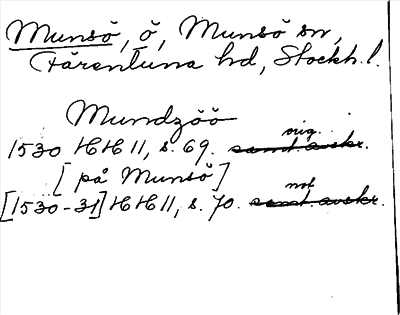 Munsö, ö, Munsö sn,
Färentuna hd, Stockh. l.
Mundzöö
1530 HH 11, s. 69. orig. samt. avskr.
[på Munsö]
[1530-31] HH 11, s. 70. not samt. avskr.